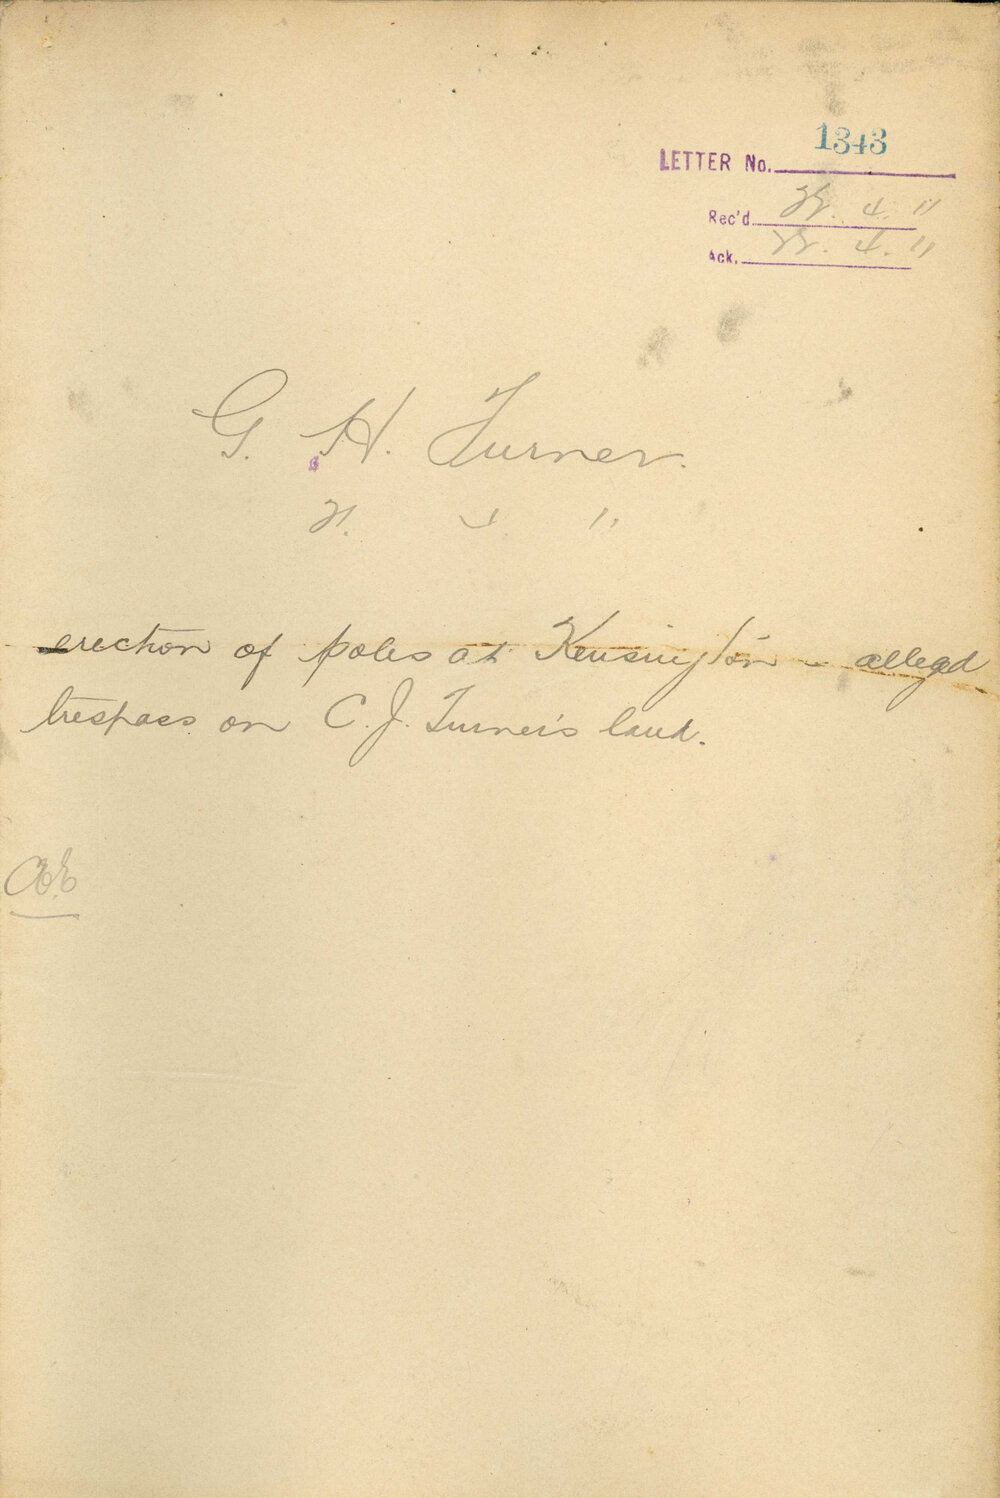 1343
LETTER No.
Rec'd 22. 4. 11
Ack. 22. 4. 11
G. H. Turner.
21. 4 11
erection of poles at Kensington - alleged
trespass on C. J. Turner's land.